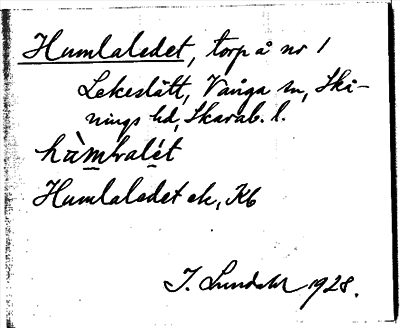 Humlaledet, torp å nr 1
Lekeslätt, Vånga sn, Skå-
nings hd, Skarab. l.
hùmlalét
Humlaledet ek, Kb
I. Lundahl 1928.